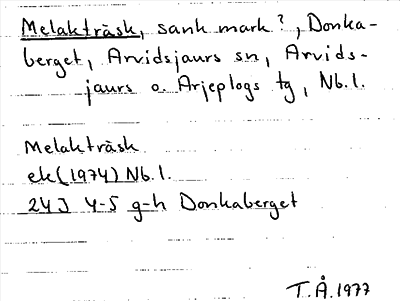 Melakträsk, sank mark?, Donka-
berget, Arvidsjaurs sn, Arvids-
jaurs o. Arjeplogs tg, Nb.l.
Melakträsk
ek(1974) Nb.l.
24J 4-5 g-h Donkaberget
T.Å.1977